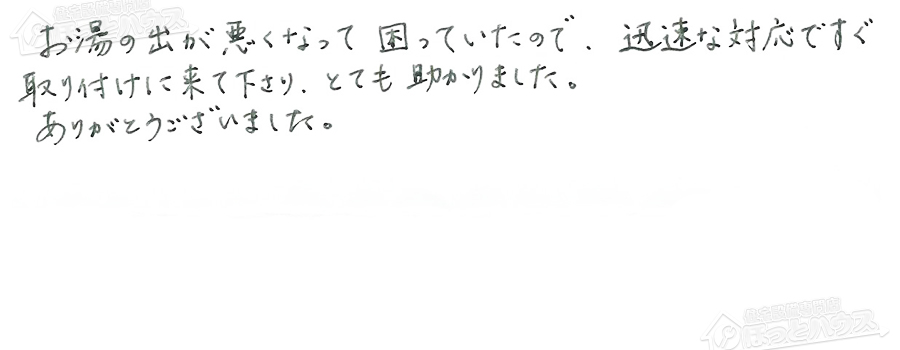 お湯の出が悪くなって困っていたので、迅速な対応ですぐ
取り付けに来て下さり、とても助かりました。
ありがとうございました。
住宅設備専門店
ほっとハウス